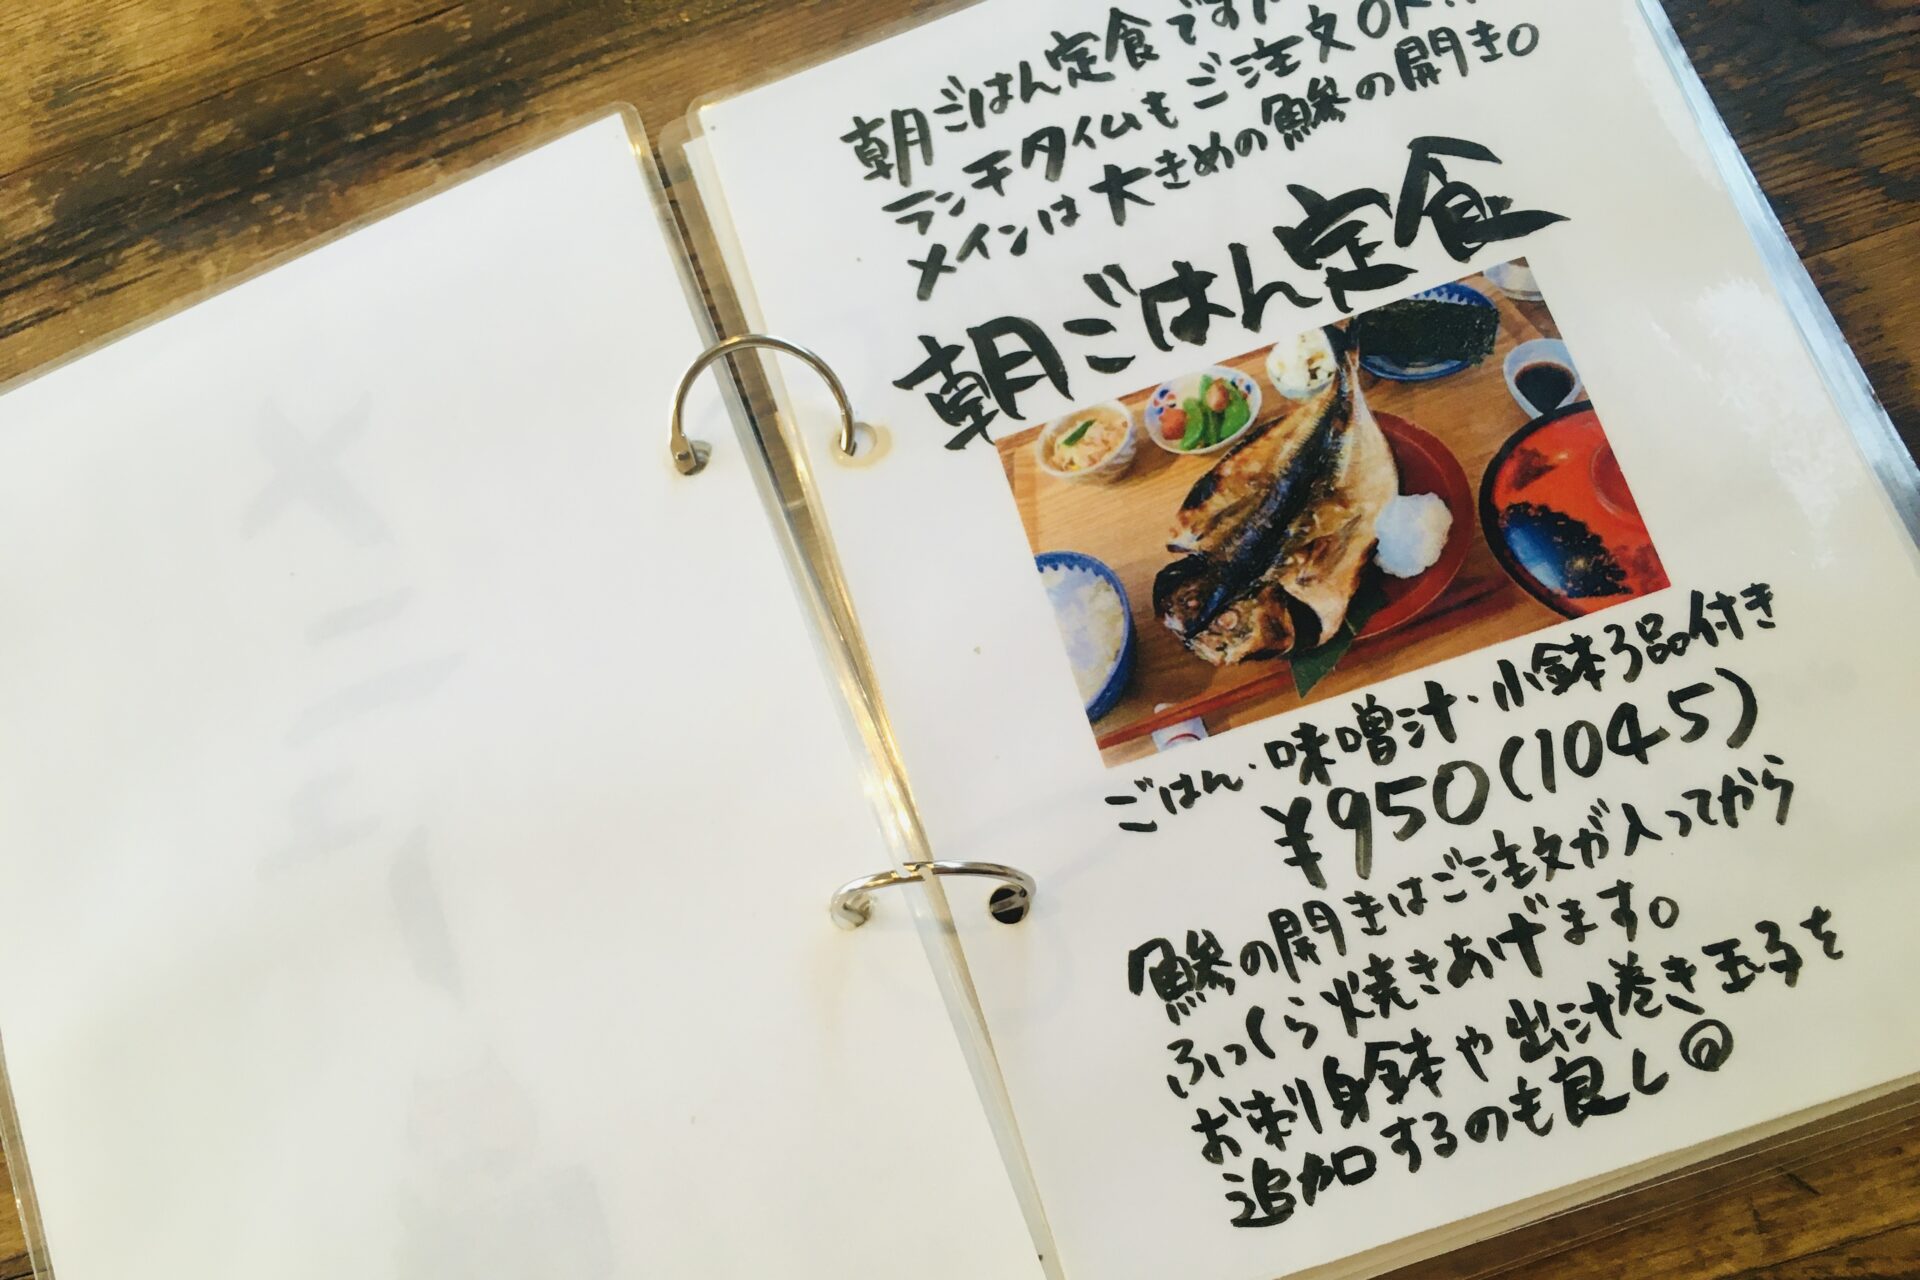 朝ごはん定食です
ランチタイムもご注文OK
メインは大きめの鯵の開き。
朝ごはん定食
ごはん・味噌汁・小鉢3品付き
¥950(1045)
鯵の開きはご注文が入ってから
ふっくら焼きあげます。
お刺身鉢や出汁巻き玉子を
追加するのも良し